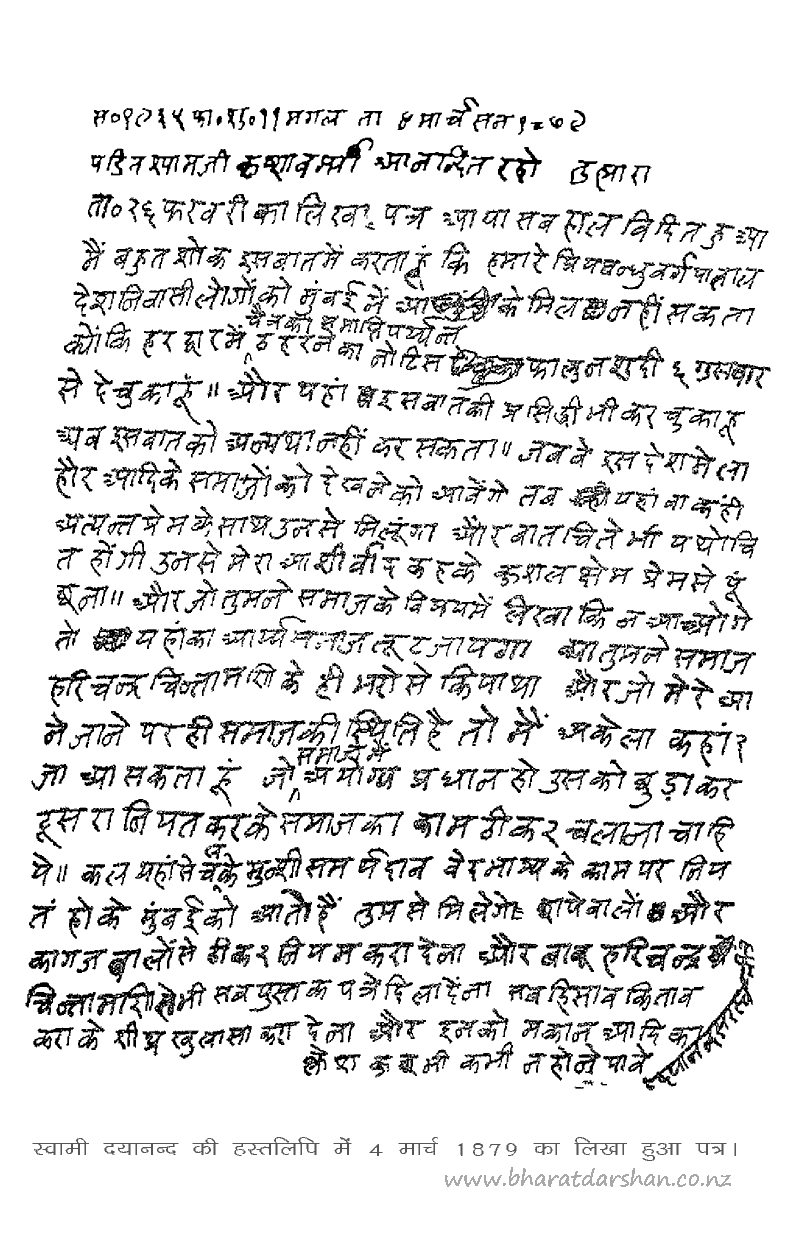 स०१९३५ फा.शु.११ मगल ता ४ मार्च सन १८७९
पडित श्यामजी कृष्णवर्मा आनन्दित रहो तुह्मारा
ता०२६ फरवरी का लिखा पत्र आया सब हाल विदित हुआ
मैं बहुत शोक इस बात में करता हूं कि हमारे प्रियबन्धुवर्ग पाताल
देश निवासी लोगों को मुंबई में आ के मिल नहीं सकता
चैत्र की समाप्ति पर्य्यन्त
क्योंकि हरद्वार में ठहरने का नोटिस फाल्गुन शुदी ६ गुरुवार
से दे चुका हूं॥ और यहां इस बात की प्रसिद्धी भी कर चुका हू
अब इस बात को अन्यथा नहीं कर सकता॥ जब वे इस देश मे ला
हौर आदि के समाजों को देखने को आवेंगे तब यहां वा कहीं
अत्यन्त प्रेम के साथ उनसे मिलूंगा और बातचिते भी यथोचि
त होंगी उनसे मेरा आशीर्वाद कहके कुशल क्षेम प्रेम से पूं
छना॥ और जो तुमने समाज के विषय में लिखा कि न आओगे
तो यहां का आर्य्यसमाज टूट जायगा क्या तुमने समाज
हरिचन्द्र चिन्तामणि के ही भरोसे किया था और जो मेरे आ
ने जाने पर ही समाज की स्थिति है तो मैं अकेला कहां२
समाज में
जा आ सकता हूं जो अयोग्य प्रधान हो उसको छुड़ा कर
दूसरा नियत करके समाज का काम ठीक२ चलाना चाहि
ये॥ कल यहां से चलके मुन्शी समर्थदान वेदभाष्य के काम पर निय
तं होके मुंबई को आते हैं तुम से मिलेगे छापेवालों और
कागज वालों से ठीक२ नियम करा देना और बाबू हरिचन्द्र
चिन्तामणि से भी सब पुस्तक पत्रे दिला देंना सब हिसाब किताब
करा के शीघ्र खुलासा करा देना और इनको मकान आदि का
क्लेश कुछ भी कभी न होने पावे
दयानन्द सरस्वती
स्वामी दयानन्द की हस्तलिपि में 4 मार्च 1879 का लिखा हुआ पत्र।
www.bharatdarshan.co.nz